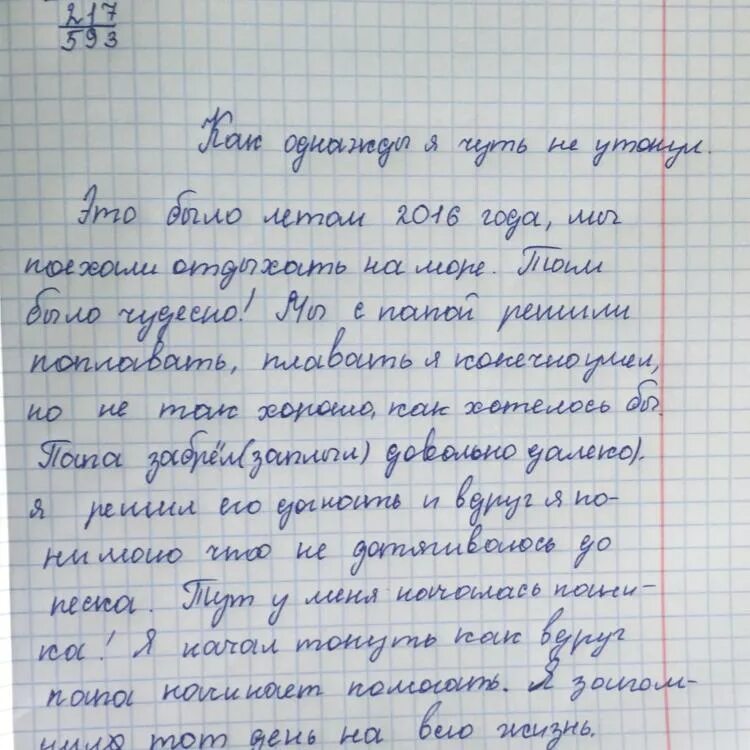 217
593
Как однажды я чуть не утонул.
Это было летом 2016 года, мы
поехали отдыхать на море. Там
было чудесно! Мы с папой решили
поплавать, плавать я конечно умел,
но не так хорошо, как хотелось бы.
Папа забрёл(заплыл) довольно далеко).
я решил его догнать и вдруг я по-
нимаю что не дотягиваюсь до
песка. Тут у меня началась пани-
ка! Я начал тонуть как вдруг
папа начинает помогать. Я запом-
нила тот день на всю жизнь.